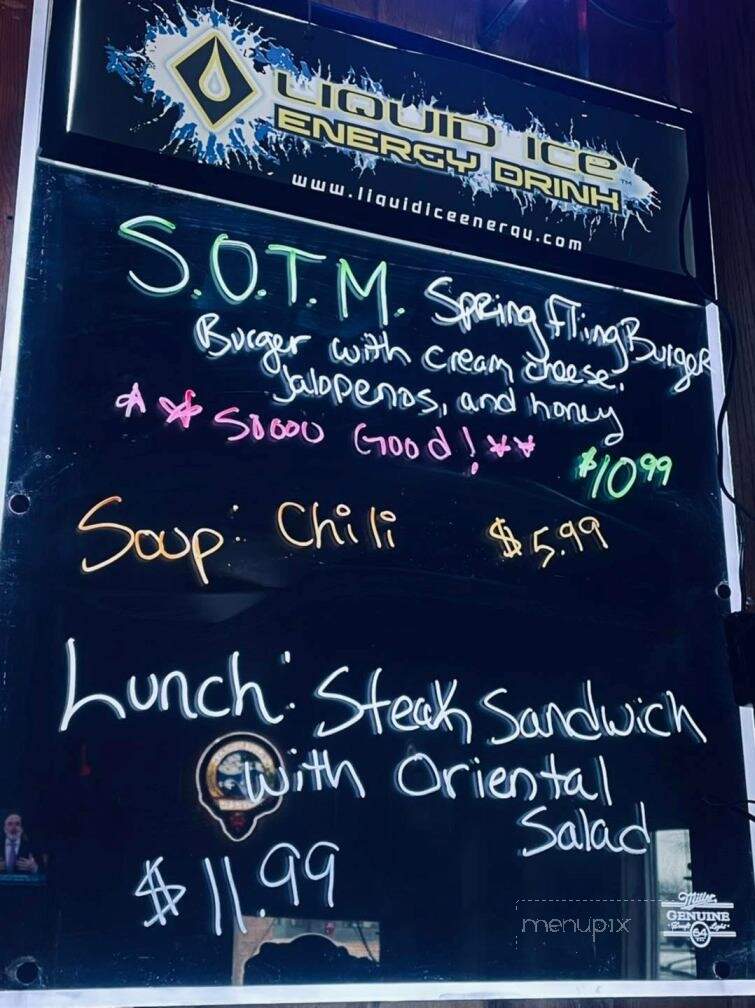 LIQUID ICE™
ENERGY DRINK
www.liquidiceenergy.com
S.O.T.M. Spring Fling Burger
Burger with cream cheese,
Jalopenos, and honey
** SOOOO GOOd! **
$10.99
Soup: Chili $5.99
Lunch: Steak Sandwich
with Oriental
Salad
$11.99
menupix
Miller
GENUINE
Draft Light
64